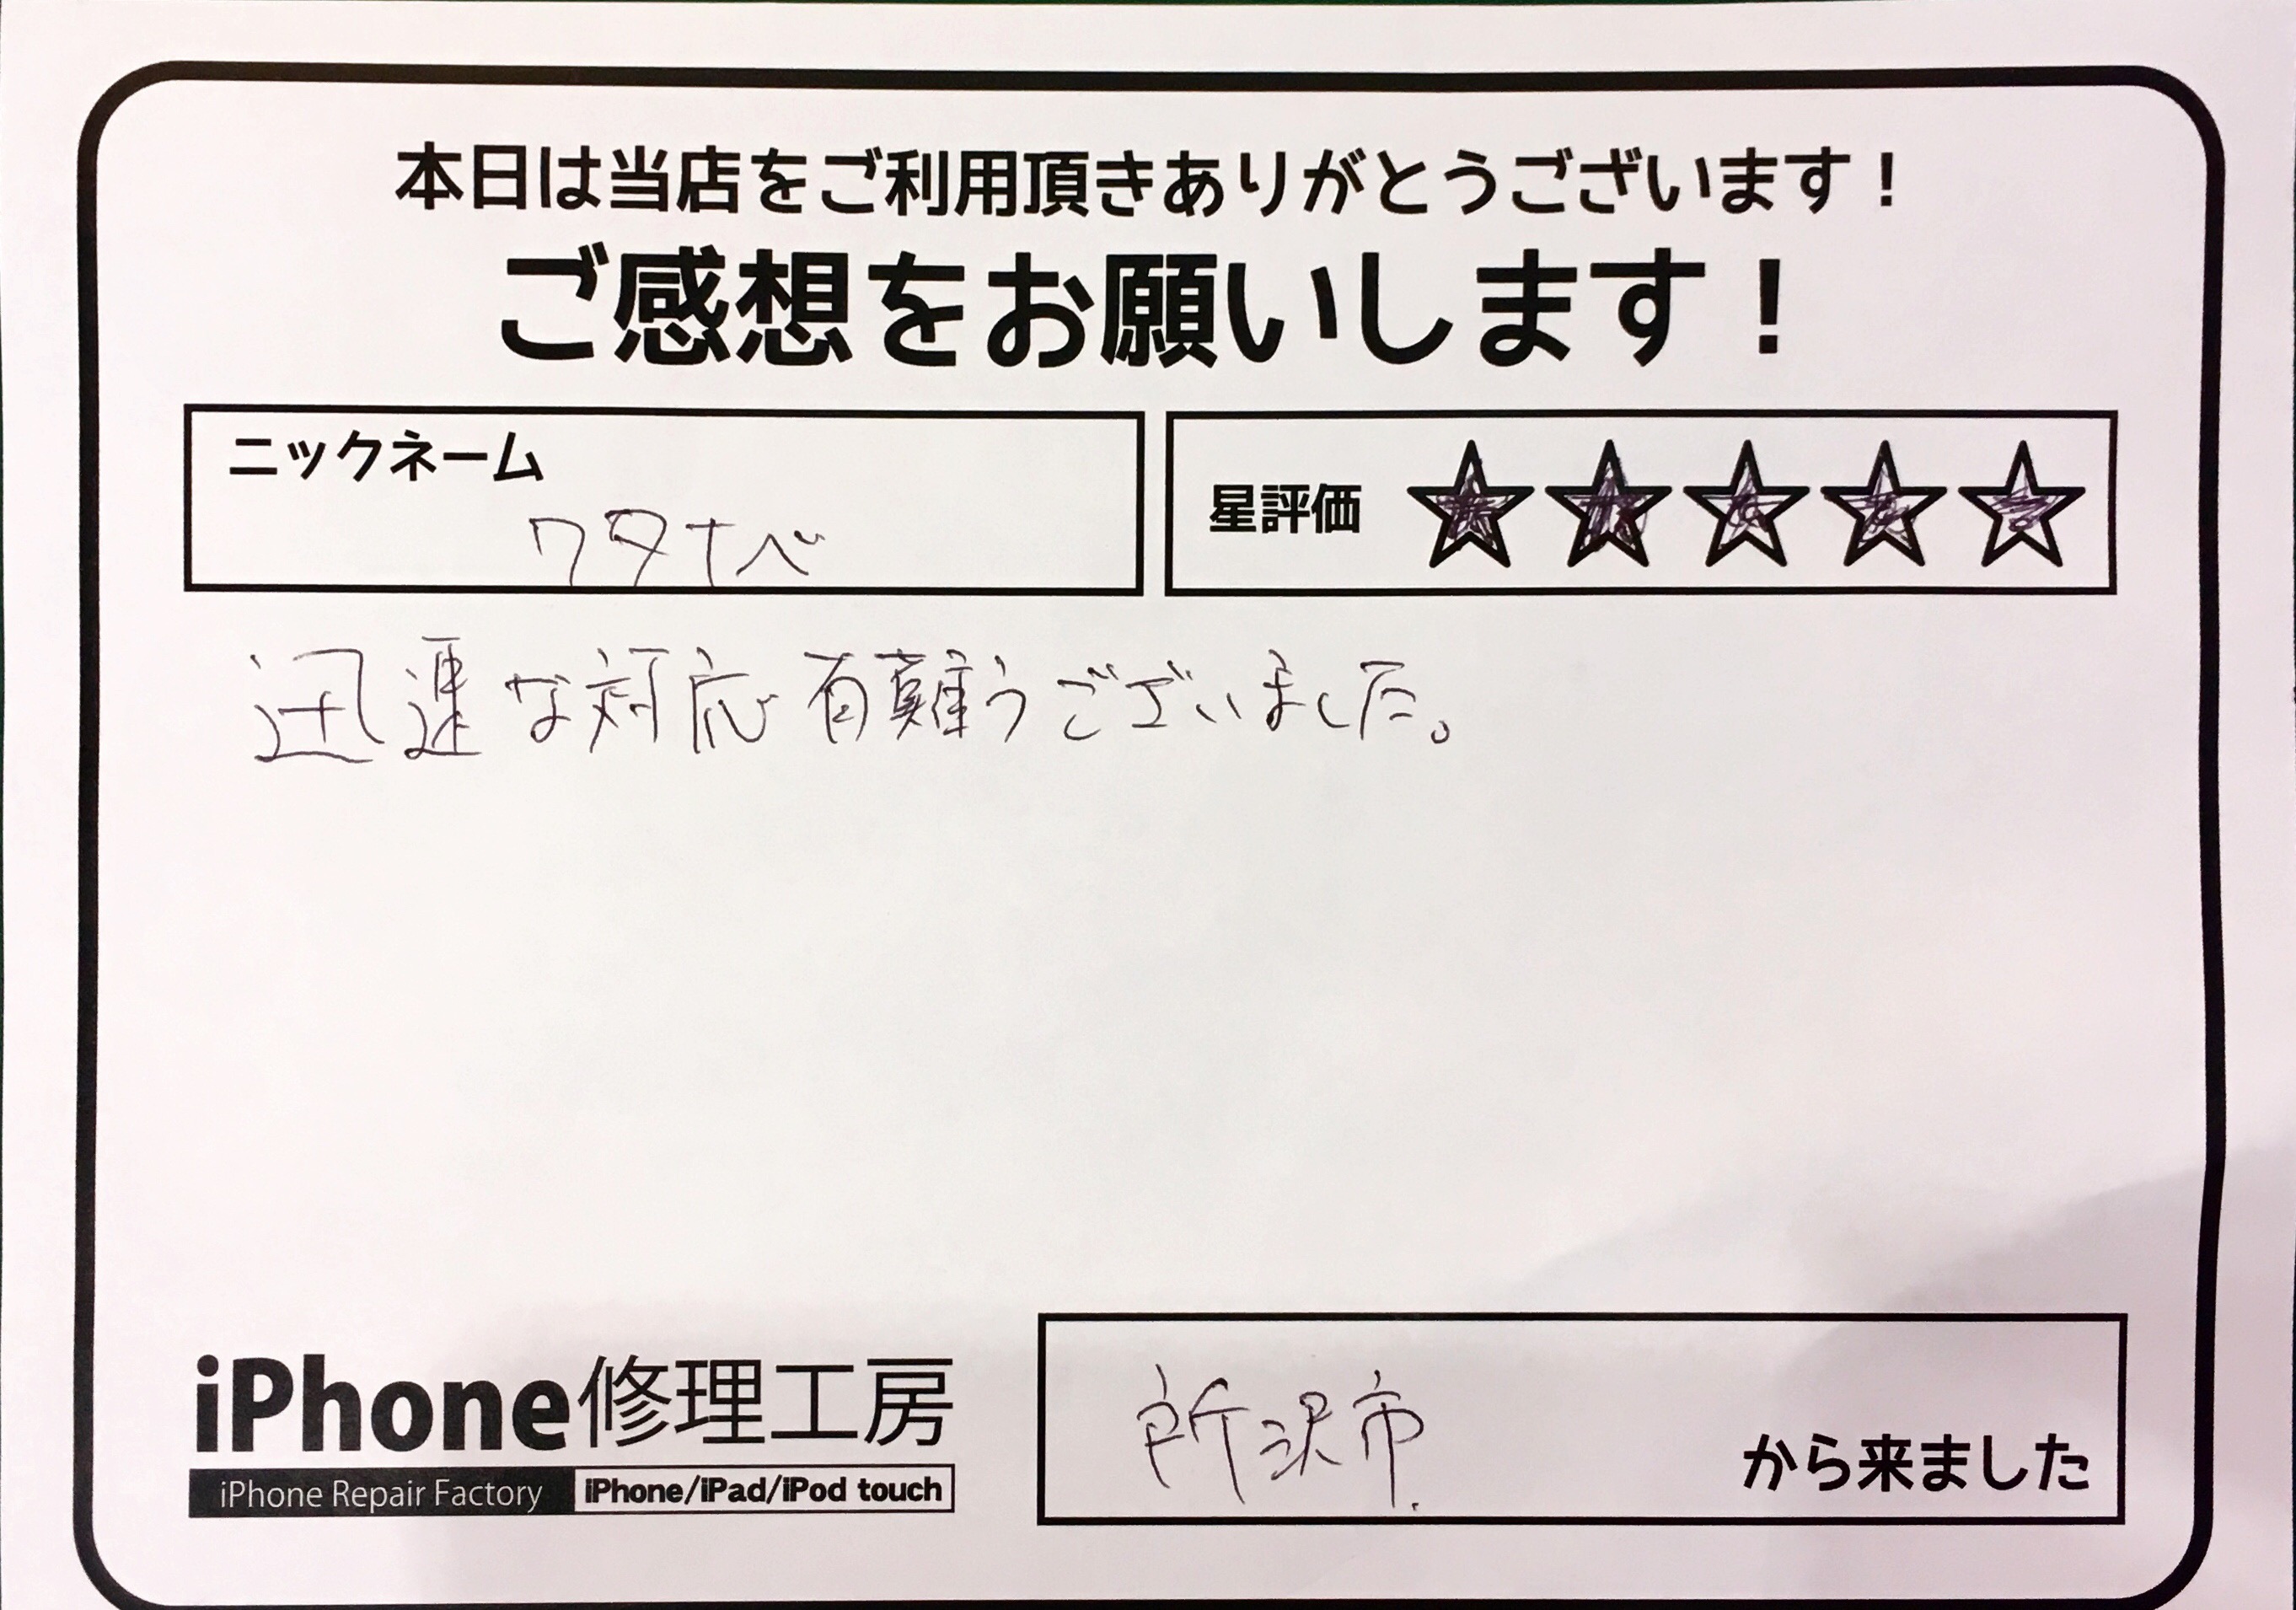 本日は当店をご利用頂きありがとうございます！
ご感想をお願いします！
ニックネーム
ワタナベ
星評価 ★★★★★
迅速な対応有難うございました。
iPhone修理工房
iPhone Repair Factory iPhone/iPad/iPod touch
所沢市.
から来ました